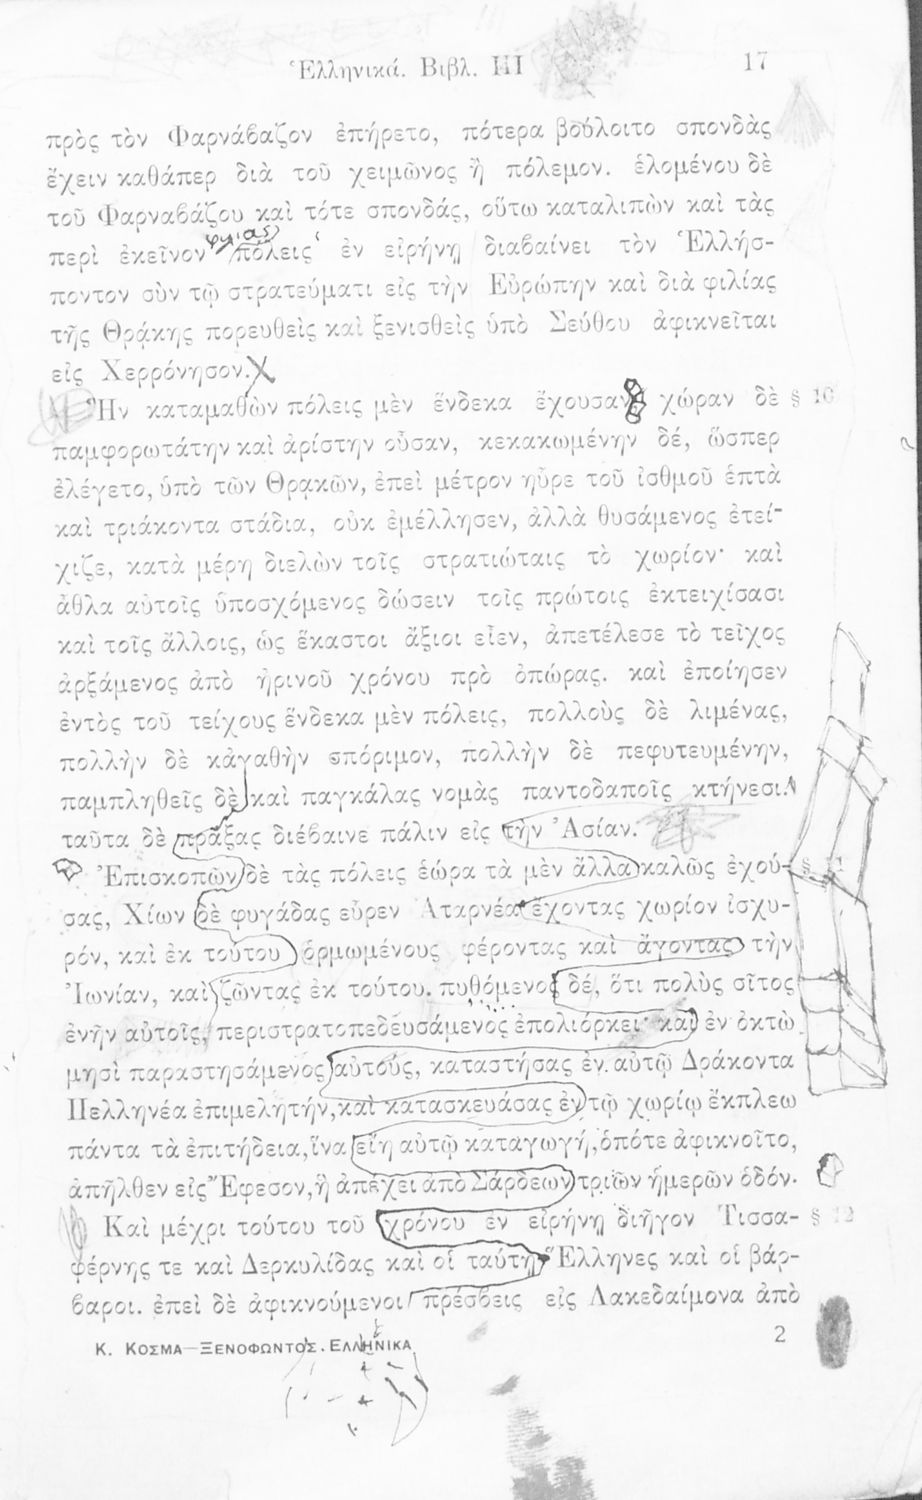 Ἑλληνικά. Βιβλ. III 17
πρὸς τὸν Φαρνάβαζον ἐπήρετο, πότερα βούλοιτο σπονδὰς
ἔχειν καθάπερ διὰ τοῦ χειμῶνος ἢ πόλεμον. ἑλομένου δὲ
τοῦ Φαρναβάζου καὶ τότε σπονδάς, οὕτω καταλιπὼν καὶ τὰς
φιλίας
περὶ ἐκεῖνον πόλεις ἐν εἰρήνῃ διαβαίνει τὸν Ἑλλήσ-
ποντον σὺν τῷ στρατεύματι εἰς τὴν Εὐρώπην καὶ διὰ φιλίας
τῆς Θρᾴκης πορευθεὶς καὶ ξενισθεὶς ὑπὸ Σεύθου ἀφικνεῖται
εἰς Χερρόνησον.
Ἣν καταμαθὼν πόλεις μὲν ἕνδεκα ἔχουσαν, χώραν δὲ § 10
παμφορωτάτην καὶ ἀρίστην οὖσαν, κεκακωμένην δέ, ὥσπερ
ἐλέγετο, ὑπὸ τῶν Θρᾳκῶν, ἐπεὶ μέτρον ηὗρε τοῦ ἰσθμοῦ ἑπτὰ
καὶ τριάκοντα στάδια, οὐκ ἐμέλλησεν, ἀλλὰ θυσάμενος ἐτεί-
χιζε, κατὰ μέρη διελὼν τοῖς στρατιώταις τὸ χωρίον· καὶ
ἆθλα αὐτοῖς ὑποσχόμενος δώσειν τοῖς πρώτοις ἐκτειχίσασι
καὶ τοῖς ἄλλοις, ὡς ἕκαστοι ἄξιοι εἶεν, ἀπετέλεσε τὸ τεῖχος
ἀρξάμενος ἀπὸ ἠρινοῦ χρόνου πρὸ ὀπώρας. καὶ ἐποίησεν
ἐντὸς τοῦ τείχους ἕνδεκα μὲν πόλεις, πολλοὺς δὲ λιμένας,
πολλὴν δὲ κἀγαθὴν σπόριμον, πολλὴν δὲ πεφυτευμένην,
παμπληθεῖς δὲ καὶ παγκάλας νομὰς παντοδαποῖς κτήνεσι.
ταῦτα δὲ πράξας διέβαινε πάλιν εἰς τὴν Ἀσίαν.
Ἐπισκοπῶν δὲ τὰς πόλεις ἑώρα τὰ μὲν ἄλλα καλῶς ἐχού- § 11
σας, Χίων δὲ φυγάδας εὗρεν Ἀταρνέα ἔχοντας χωρίον ἰσχυ-
ρόν, καὶ ἐκ τούτου ὁρμωμένους φέροντας καὶ ἄγοντας τὴν
Ἰωνίαν, καὶ ζῶντας ἐκ τούτου. πυθόμενος δέ, ὅτι πολὺς σῖτος
ἐνῆν αὐτοῖς, περιστρατοπεδευσάμενος ἐπολιόρκει· καὶ ἐν ὀκτὼ
μησὶ παραστησάμενος αὐτούς, καταστήσας ἐν αὐτῷ Δράκοντα
Πελληνέα ἐπιμελητήν, καὶ κατασκευάσας ἐν τῷ χωρίῳ ἔκπλεω
πάντα τὰ ἐπιτήδεια, ἵνα εἴη αὐτῷ καταγωγή, ὁπότε ἀφικνοῖτο,
ἀπῆλθεν εἰς Ἔφεσον, ἣ ἀπέχει ἀπὸ Σάρδεων τριῶν ἡμερῶν ὁδόν.
Καὶ μέχρι τούτου τοῦ χρόνου ἐν εἰρήνῃ διῆγον Τισσα- § 12
φέρνης τε καὶ Δερκυλίδας καὶ οἱ ταύτῃ Ἕλληνες καὶ οἱ βάρ-
βαροι. ἐπεὶ δὲ ἀφικνούμενοι πρέσβεις εἰς Λακεδαίμονα ἀπὸ
Κ. ΚΟΣΜΑ — ΞΕΝΟΦΩΝΤΟΣ. ΕΛΛΗΝΙΚΑ 2